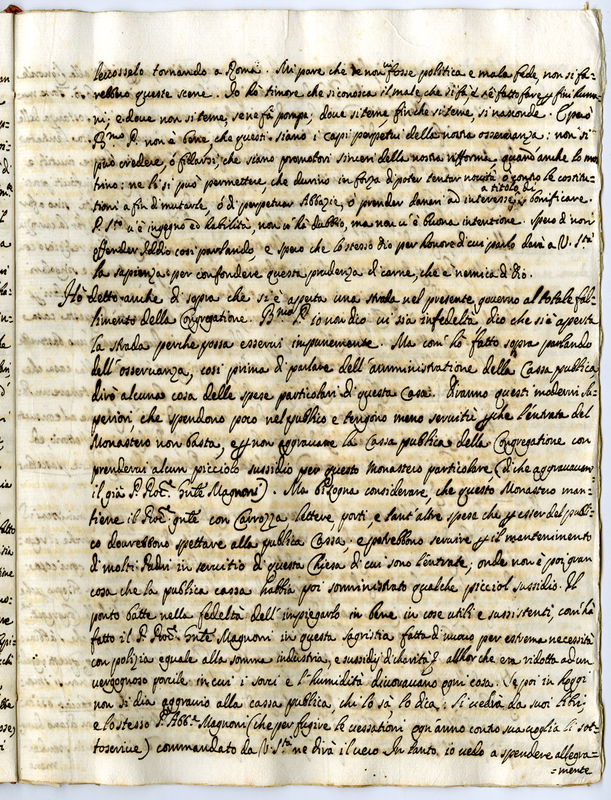 leccosselo tornando a Roma. Mi pare che se non vi fosse politica e mala fede, non si fa-
rebbero queste scene. Io hò timore che si conosca il male che si fà, è fatto fare p fini huma-
ni; e dove non si teme, se ne fà pompa; dove si teme finche si teme, si nasconde. E però
Bmo P. non è bene, che questi siano i capi perpetui della nostra osservanza: non si
può credere, ò fidarsi, che siano promotori sinceri della nostra riforma, quand'anche lo mo-
strino: ne li si può permettere, che durino in forza di poter tentar novità ò contro le costitu-
tioni a fin di mutarle, ò di perpetuar Abbazie, ò prender denari ad interesse a titolo di bonificare.
P. Sto v'è ingegno ed habilità, non v'hò dubbio, ma non v'è buona intentione. Spero di non
offender Iddio così parlando, e spero che lo stesso Dio per honore di cui parlo darà a V. Stà
la sapienza per confondere questa prudenza di carne, che è nemica di Dio.
Hò detto anche di sopra che si è aperta una strada nel presente governo al totale fal-
limento della Congregatione. Bmo P. io non dico vi sia infedeltà, dico che si è aperta
la strada perche possa esservi impunemente. Ma com'hò fatto sopra parlando
dell'osservanza, così prima di parlare dell'amministratione della Cassa publica
dirò alcuna cosa delle spese particolari di questa Casa. Diranno questi moderni Su-
periori, che spendono poco nel publico e tengono meno servitù p che l'entrata del
Monastero non basta, e p non aggravare la Cassa publica della Congregatione con
prendervi alcun picciolo sussidio per questo monastero particolare, (di che aggravavan-
il già P. Proc. Gnle Magnoni). Ma bisogna considerare, che questo Monastero man-
tiene il Proc. gnle con Carrozza, lettere, porti, e tant'altre spese che p esser del publi-
co dovrebbono spettare alla publica Cassa, e potrebbono servire p il mantenimento
di molti Padri in servitio di questa Chiesa di cui sono l'entrate; onde non è poi gran
cosa che la publica cassa habbia poi somministrato qualche picciol sussidio. Il
ponto batte nella fedeltà dell'impiegarlo in bene, in cose utili e sussistenti, com'hà
fatto il P. Proc. Gnle Magnoni in questa sagristia fatta di nuovo per estrema necessità
con polizia eguale alla somma industria, e sussidij di charità, allhor che era ridotta ad un
vergognoso porcile in cui i sorci e l'humidità divoravano ogni cosa. Se poi in hoggi
non si dia aggravio alla cassa publica, chi lo sà, lo dica. Si vedrà da suoi libri,
e lo stesso P. Abb. Magnoni (che per fugire le vessationi ogn'anno contro sua voglia li sot-
toscrive) commandato da V. Stà ne dirà il vero. In tanto io vedo a spendere allegra-
=mente